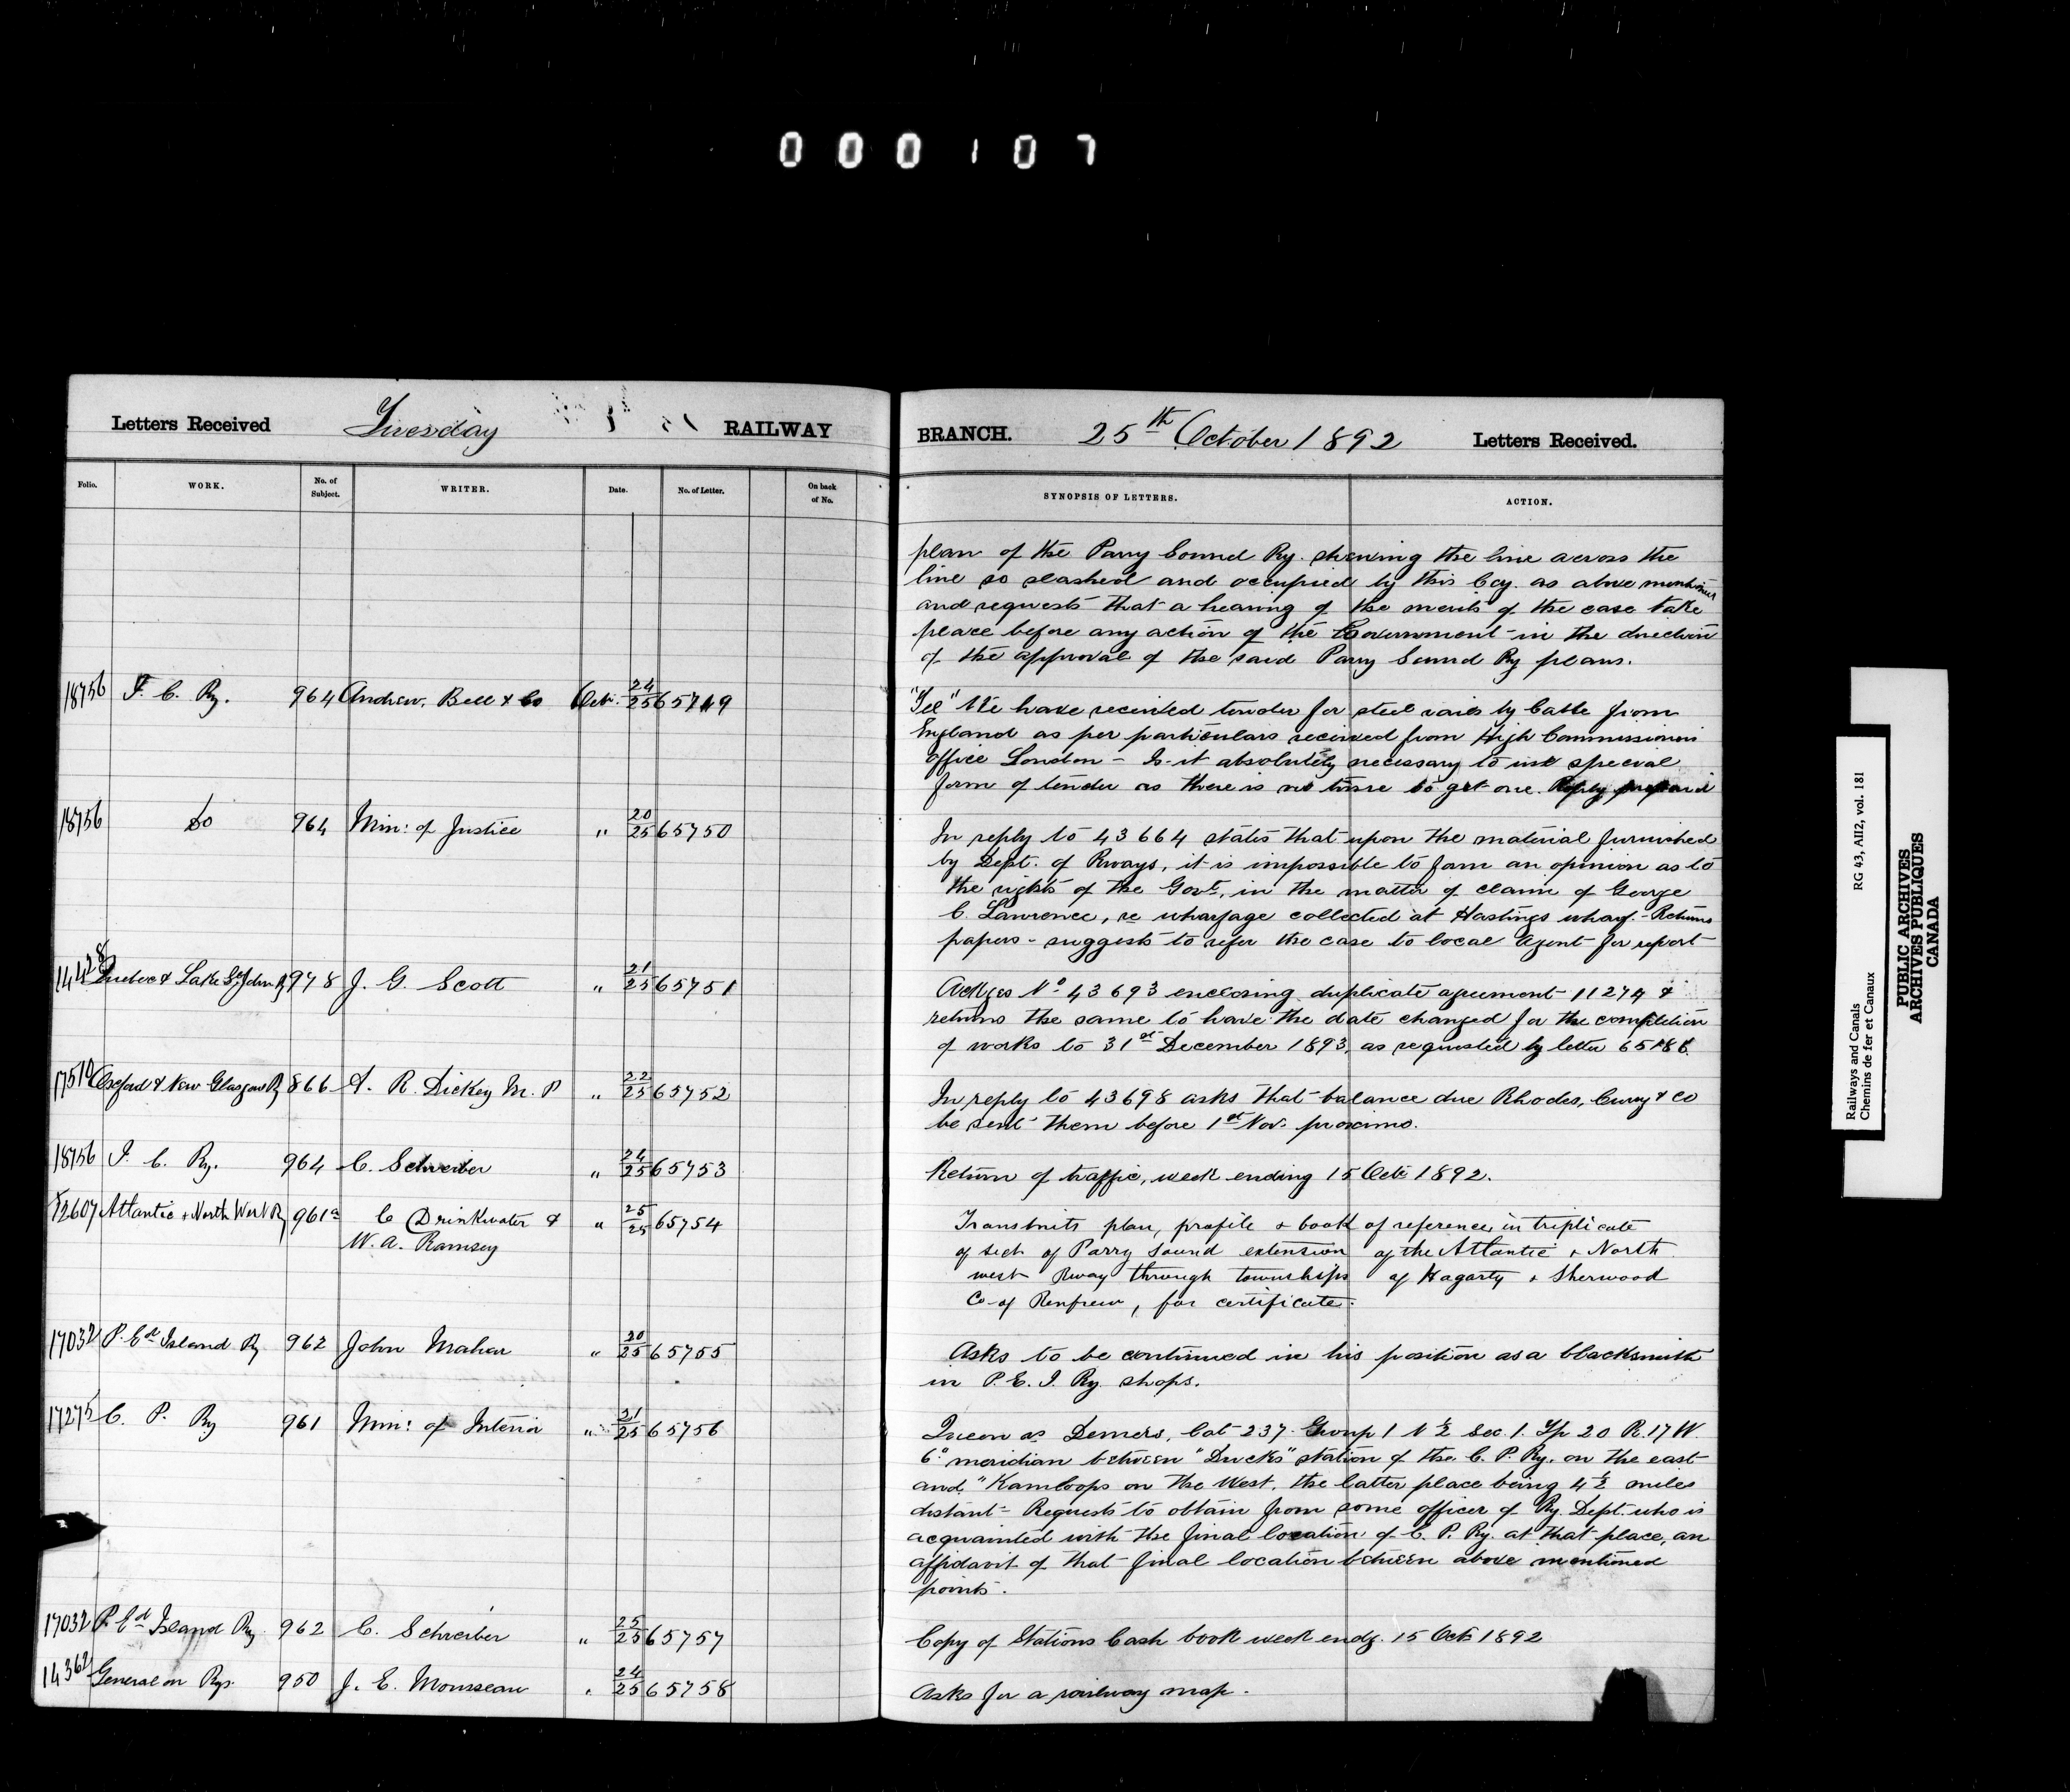 000107
Letters Received Tuesday RAILWAY
BRANCH. 25th October 1892 Letters Received.
Folio. WORK. No. of Subject. WRITER. Date. No. of Letter. On back of No.
SYNOPSIS OF LETTERS. ACTION.
plan of the Parry Sound Ry. shewing the line across the
line so slashed and occupied by this Coy. as above
and requests that a hearing of the merits of the case take
place before any action of the Government in the direction
of the approval of the said Parry Sound Ry plans.
18756 I. C. Ry. 964 Andrew, Bell & Co Oct. 24/25 65749
"Tel" We have received tender for steel rails by Cable from
England as per particulars received from High Commissioners
office London - Is it absolutely necessary to use special
form of tender as there is no time to get one. Reply prepaid
18756 Do 964 Min: of Justice " 20/25 65750
In reply to 43664 states that upon the material furnished
by Dept. of Rways, it is impossible to form an opinion as to
the rights of the Govt, in the matter of claim of George
C. Lawrence, re wharfage collected at Hastings wharf. - Returns
papers - suggests to refer the case to local Agent for report
14428 Quebec & Lake St John Ry 978 J. G. Scott " 21/25 65751
Ackges No 43693 enclosing duplicate agreement 11274 &
returns the same to have the date changed for the completion
of works to 31st December 1893, as requested by letter
17510 Oxford & New Glasgow Ry 866 A. R. Dickey M. P " 22/25 65752
In reply to 43698 asks that balance due Rhodes, Curry & Co
be sent them before 1st Nov: proximo.
18756 I. C. Ry. 964 C. Schreiber " 24/25 65753
Return of traffic, week ending 15 Oct 1892.
12607 Atlantic & North West Ry 961a C Drinkwater & " 25/25 65754
W. A. Ramsey
Transmits plan, profile & book of reference in triplicate
of sect of Parry Sound extension of the Atlantic & North
west Rway through townships of Hagarty & Sherwood
Co of Renfrew, for certificate.
17032 P. Ed Island Ry 962 John Mahar " 20/25 65755
Asks to be continued in his position as a blacksmith
in P. E. I. Ry. shops.
17275 C. P. Ry 961 Min: of Interior " 21/25 65756
Queen vs Demers, Lot 237 Group 1 N ½ Sec. 1. Tp 20 R. 17 W.
6" meridian between "Ducks" station of the C. P. Ry. on the east
and "Kamloops on the West, the latter place being 4½ miles
distant - Requests to obtain from some officer of Ry. Dept. who is
acquainted with the final location of C. P. Ry. at that place, an
affidavit of that final location between above mentioned
points.
17032 P. Ed Island Ry 962 C. Schreiber " 25/25 65757
Copy of Stations Cash book week endg. 15 Oct 1892
14362 General on Rys. 950 J. E. Mousseau " 24/25 65758
Asks for a railway map.
Railways and Canals
Chemins de fer et Canaux
RG 43, AII2, vol. 181
PUBLIC ARCHIVES
ARCHIVES PUBLIQUES
CANADA